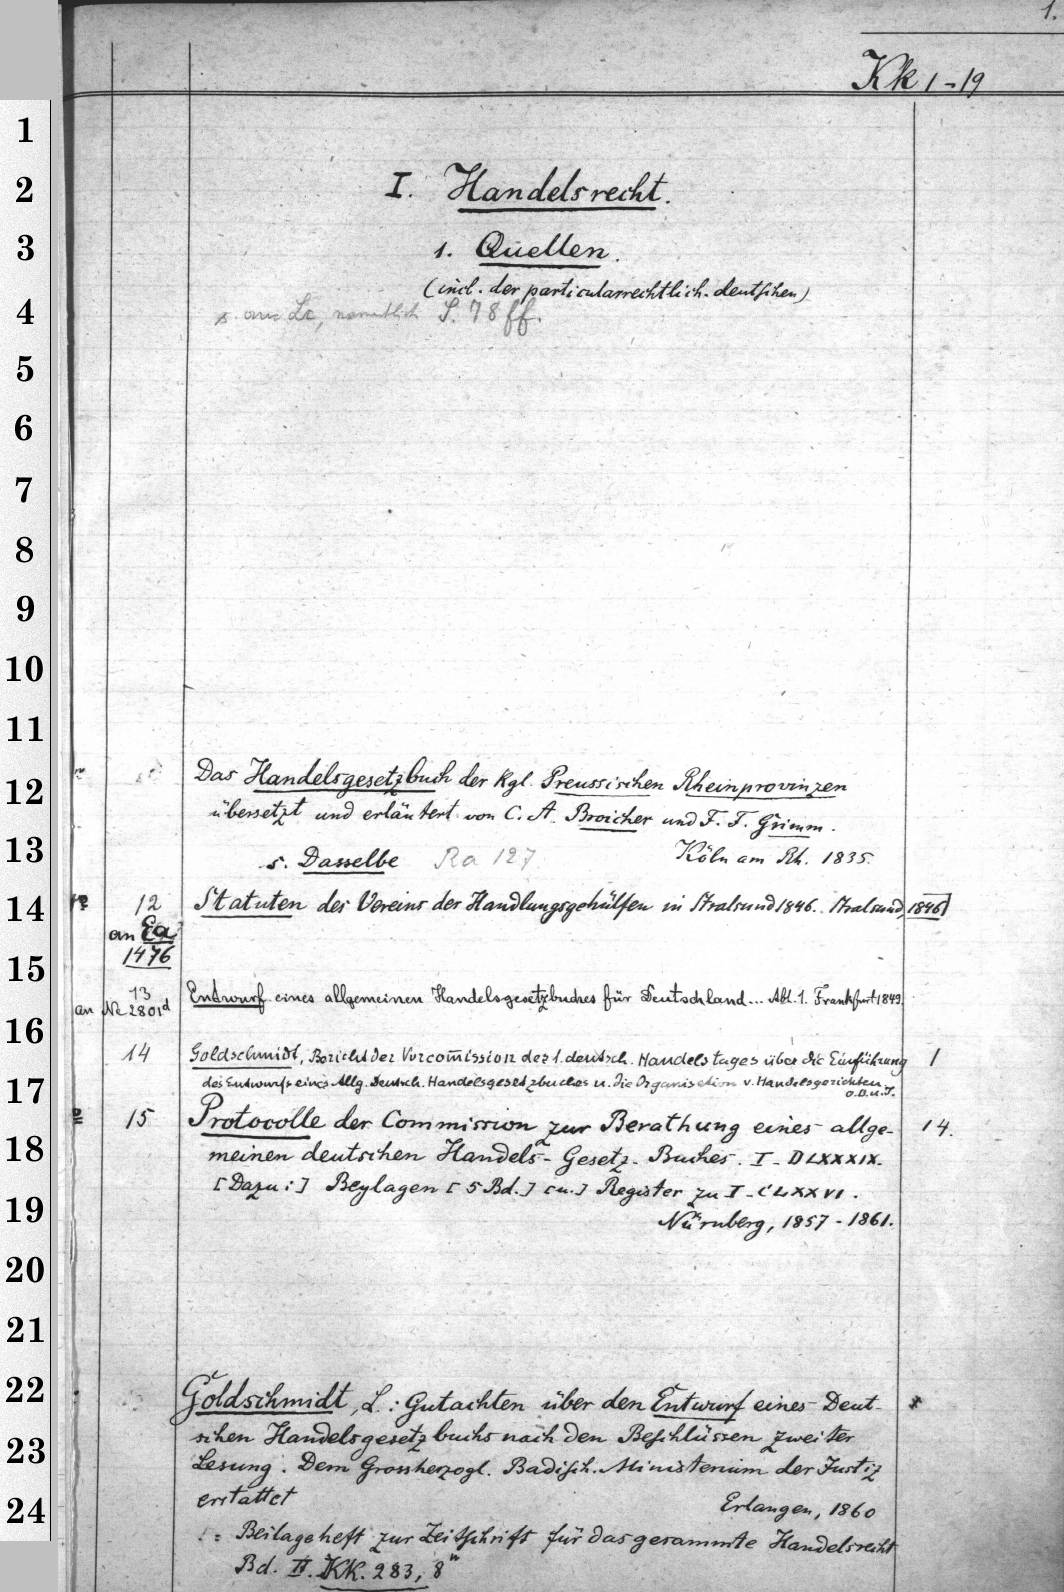 1.
Kk 1-19
I. Handelsrecht.
1. Quellen.
(incl. der particularrechtlich-deutschen)
s. auc Lc, namentlich S. 78 ff.
Das Handelsgesetzbuch der Kgl. Preussischen Rheinprovinzen
übersetzt und erläutert von C. A. Broicher und F. F. Grimm.
Köln am Rh. 1835.
s. Dasselbe Ra 127
12 Statuten des Vereins der Handlungsgehülfen in Stralsund 1846. Stralsund, 1846
an Ea
1476
13 Entwurf eines allgemeinen Handelsgesetzbuches für Deutschland... Abt. 1. Frankfurt 1849.
an Nc 2801d
14 Goldschmidt, Bericht der Vorcom̄ission des 1. deutsch. Handelstages über die Einführung 1
des Entwurfs eines Allg. Deutsch. Handelsgesetzbuches u. die Organisation v. Handelsgerichten
o.O.u.J.
15 Protocolle der Commission zur Berathung eines allge- 14.
meinen deutschen Handels-Gesetz-Buches. I-DLXXXIX.
[Dazu:] Beylagen [5 Bd.] [u.] Register zu I-CLXXVI.
Nürnberg, 1857-1861.
Goldschmidt, L.: Gutachten über den Entwurf eines Deut-
schen Handelsgesetzbuchs nach den Beschlüssen zweiter
Lesung. Dem Grossherzogl. Badisch. Ministerium der Justiz
erstattet Erlangen, 1860
= Beilageheft zur Zeitschrift für das gesammte Handelsrecht
Bd. II. Kk. 283, 8"
1
2
3
4
5
6
7
8
9
10
11
12
13
14
15
16
17
18
19
20
21
22
23
24